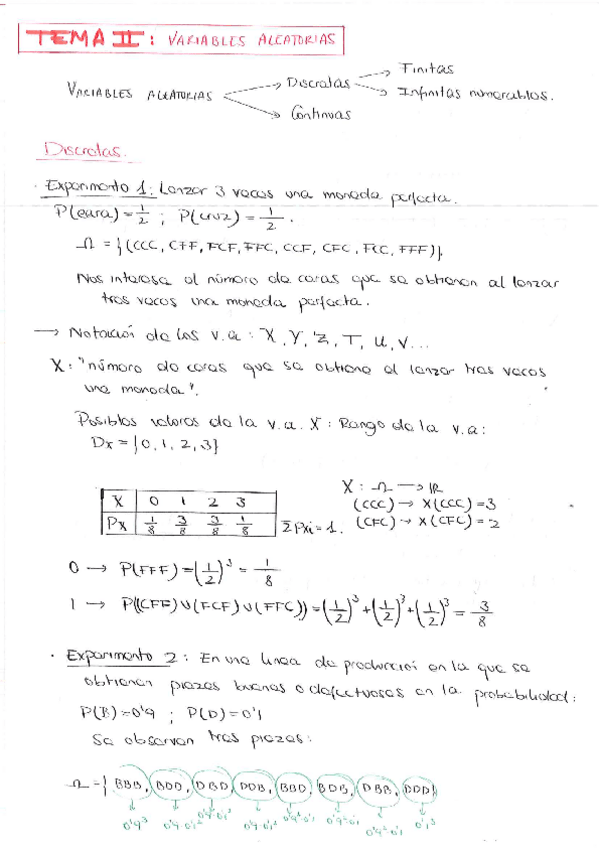 TEMA II: VARIABLES ALEATORIAS
VARIABLES ALEATORIAS
Discretas
Finitas
Infinitas numerables.
Continuas
Discretas.
Experimento 1: Lanzar 3 veces una moneda perfecta.
P(cara)=1/2 ; P(cruz)=1/2.
Ω = {(CCC, CFF, FCF, FFC, CCF, CFC, FCC, FFF)}
Nos interesa el número de caras que se obtienen al lanzar
tres veces una moneda perfecta.
→ Notación de las v.a: X, Y, Z, T, U, V...
X: "número de caras que se obtiene al lanzar tres veces
una moneda".
Posibles valores de la v.a. X: Rango de la v.a:
Dx = {0, 1, 2, 3}
X 0 1 2 3
Px 1/8 3/8 3/8 1/8
ΣPxi = 1.
X: Ω → IR
(CCC) → X(CCC)=3
(CFC) → X(CFC)=2
0 → P(FFF) = (1/2)³ = 1/8
1 → P((CFF)∪(FCF)∪(FFC)) = (1/2)³+(1/2)³+(1/2)³ = 3/8
· Experimento 2: En una linea de producción en la que se
obtienen piezas buenas o defectuosas en la probabilidad:
P(B)=0'9 ; P(D)=0'1
Se observan tres piezas:
Ω = { BBB, BDD, DBD, DDB, BBD, BDB, DBB, DDD}
0'9³ 0'9·0'1² 0'9·0'1² 0'9·0'1² 0'9²·0'1 0'9²·0'1 0'9²·0'1 0'1³